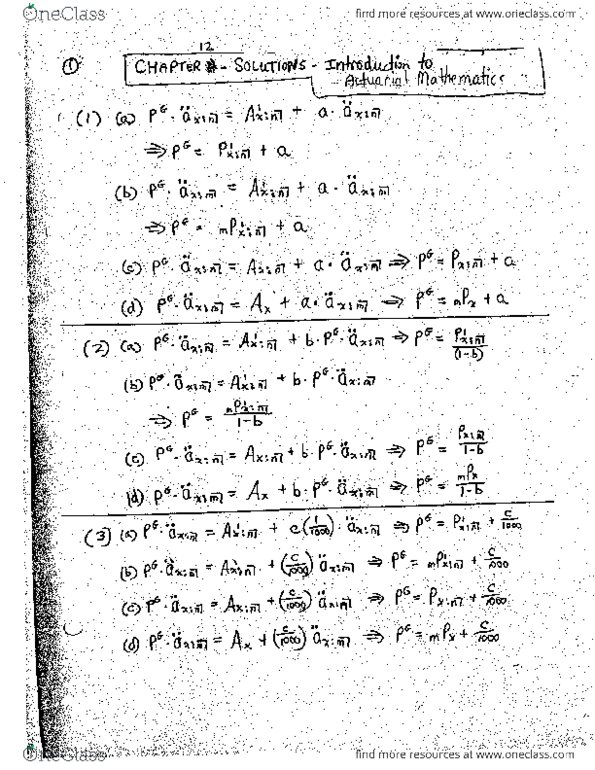 OneClass
find more resources at www.oneclass.com
12
① CHAPTER - SOLUTIONS - Introduction to
Actuarial Mathematics
(1) (a) P^G · ä_{x:n̅|} = A^1_{x:n̅|} + a · ä_{x:n̅|}
⇒ P^G = P^1_{x:n̅|} + a
(b) P^G · ä_{x:m̅|} = A^1_{x:n̅|} + a · ä_{x:m̅|}
⇒ P^G = _mP^1_{x:n̅|} + a
(c) P^G · ä_{x:n̅|} = A_{x:n̅|} + a · ä_{x:n̅|} ⇒ P^G = P_{x:n̅|} + a
(d) P^G · ä_{x:m̅|} = A_x + a · ä_{x:m̅|} ⇒ P^G = _mP_x + a
(2) (a) P^G · ä_{x:n̅|} = A^1_{x:n̅|} + b · P^G · ä_{x:n̅|} ⇒ P^G = P^1_{x:n̅|}/(1-b)
(b) P^G · ä_{x:m̅|} = A^1_{x:n̅|} + b · P^G · ä_{x:m̅|}
⇒ P^G = _mP^1_{x:n̅|}/1-b
(c) P^G · ä_{x:n̅|} = A_{x:n̅|} + b · P^G · ä_{x:n̅|} ⇒ P^G = P_{x:n̅|}/1-b
(d) P^G · ä_{x:m̅|} = A_x + b · P^G · ä_{x:m̅|} ⇒ P^G = _mP_x/1-b
(3) (a) P^G · ä_{x:n̅|} = A^1_{x:n̅|} + c(1/1000) · ä_{x:n̅|} ⇒ P^G = P^1_{x:n̅|} + c/1000
(b) P^G · ä_{x:m̅|} = A^1_{x:n̅|} + (c/1000) ä_{x:m̅|} ⇒ P^G = _mP^1_{x:n̅|} + c/1000
(c) P^G · ä_{x:n̅|} = A_{x:n̅|} + (c/1000) ä_{x:n̅|} ⇒ P^G = P_{x:n̅|} + c/1000
(d) P^G · ä_{x:m̅|} = A_x + (c/1000) ä_{x:m̅|} ⇒ P^G = _mP_x + c/1000
OneClass
find more resources at www.oneclass.com